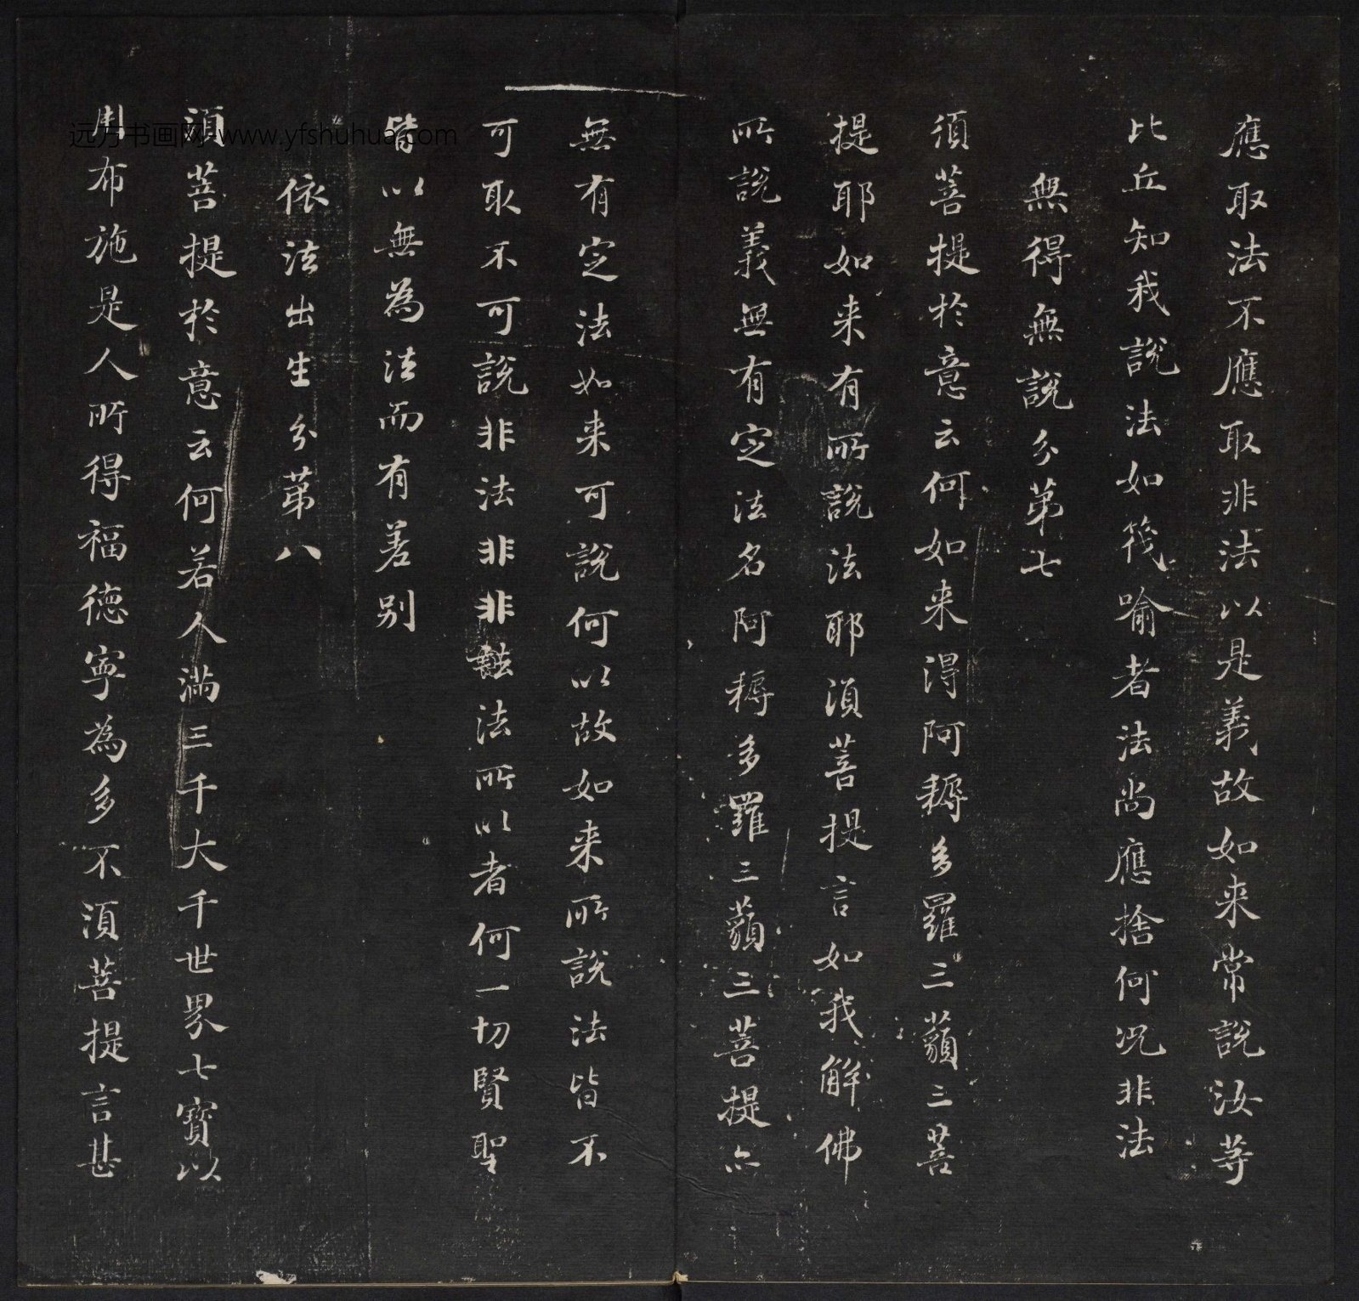 應取法不應取非法以是義故如来常說汝等
比丘知我說法如筏喻者法尚應捨何况非法
無得無說分第七
須菩提於意云何如来得阿耨多羅三藐三菩
提耶如来有所說法耶須菩提言如我解佛
所說義無有定法名阿耨多羅三藐三菩提亦
無有定法如来可說何以故如来所說法皆不
可取不可說非法非非法所以者何一切賢聖
皆以無為法而有差别
依法出生分第八
須菩提於意云何若人滿三千大千世界七寶以
用布施是人所得福德寧為多不須菩提言甚
远方书画网-www.yfshuhua.com